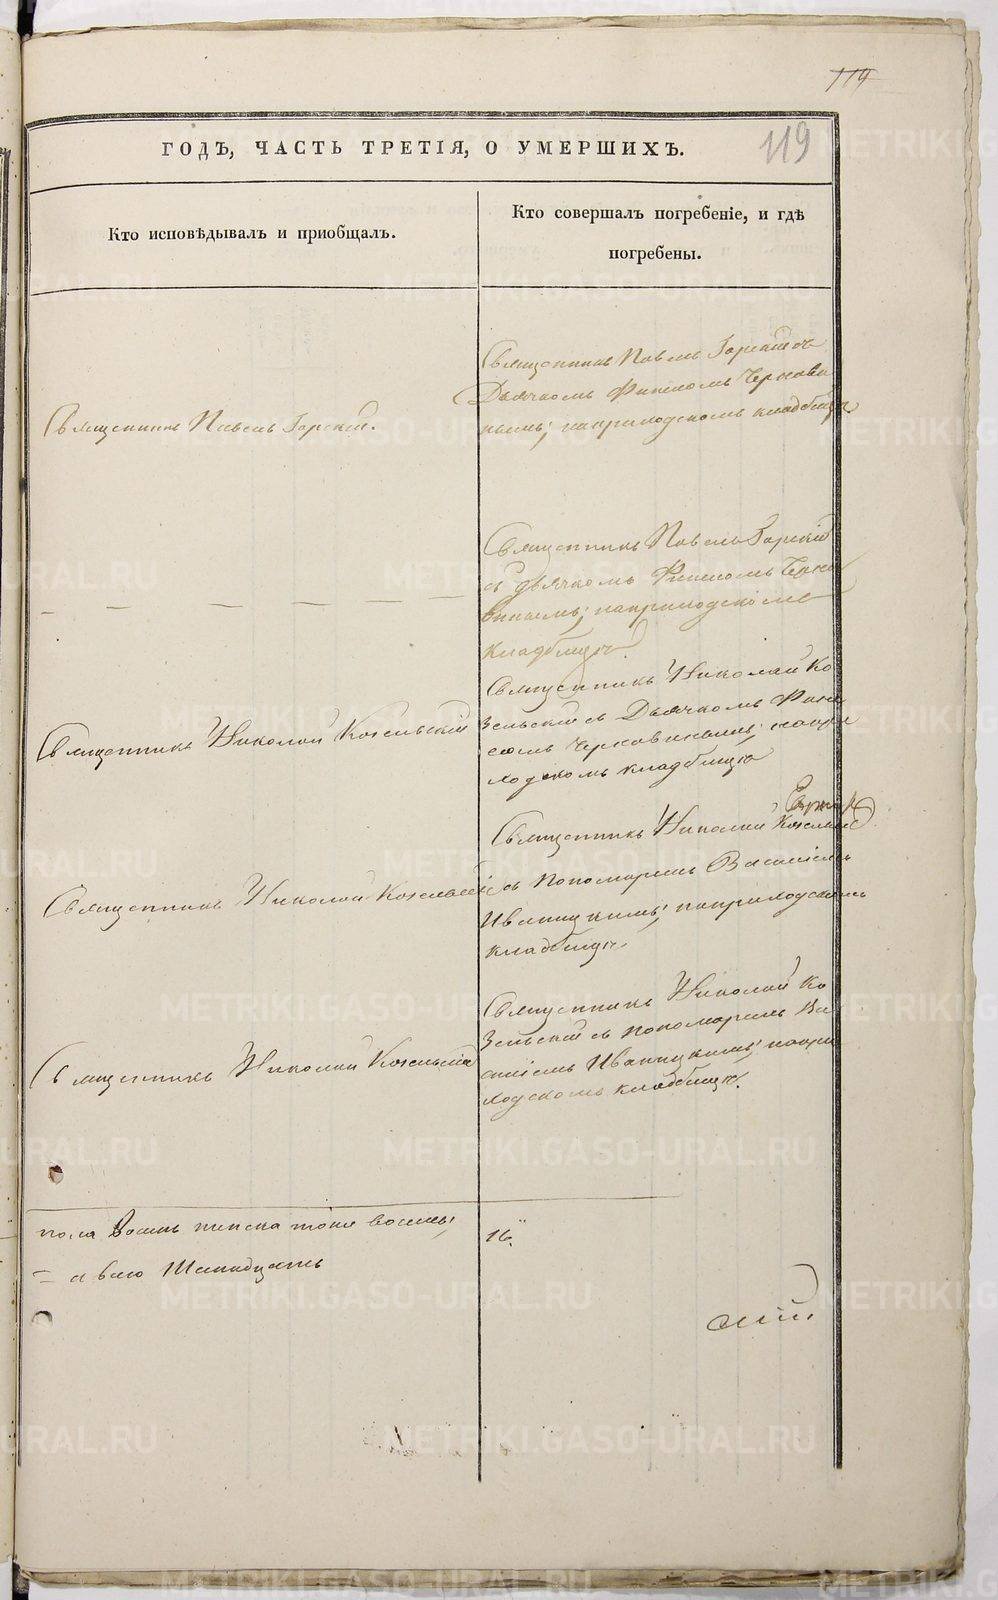 119
119
ГОДЪ, ЧАСТЬ ТРЕТІЯ, О УМЕРШИХЪ.
Кто исповѣдывалъ и пріобщалъ.
Кто совершалъ погребеніе, и гдѣ
погребены.
Священникъ Павелъ Горскій съ
Дьячкомъ Финеесомъ Черкови
нымъ; наприходскомъ кладбищѣ
Священникъ Павелъ Горскій.
Священникъ Павелъ Горскій
съ дьячкомъ Финеесомъ
наприходскомъ
кладбищѣ.
Священникъ Николай Козельскій
Священникъ Николай Ко
зельскій съ Дьячкомъ Фине
наприходскомъ кладбищѣ
Священникъ Николай Козельскій
Священникъ Николай Козельскій
съ Пономаремъ Василіемъ
Иваницкимъ; наприходскомъ
кладбищѣ.
Священникъ Николай Козельскій
Священникъ Николай Ко
зельскій съ пономаремъ Ва
силіемъ Иваницкимъ; напри
ходскомъ кладбищѣ.
пола восемь женска тоже восемь,
16.
= а всего Шеснадцать
METRIKI.GASO-URAL.RU